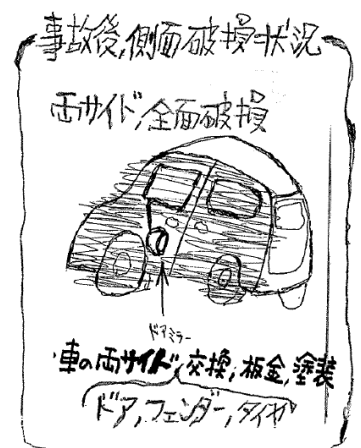 事故後,側面破損状況
両サイド,全面破損
ドアミラー
車の両サイド,交換,板金,塗装
ドア,フェンダー,タイヤ